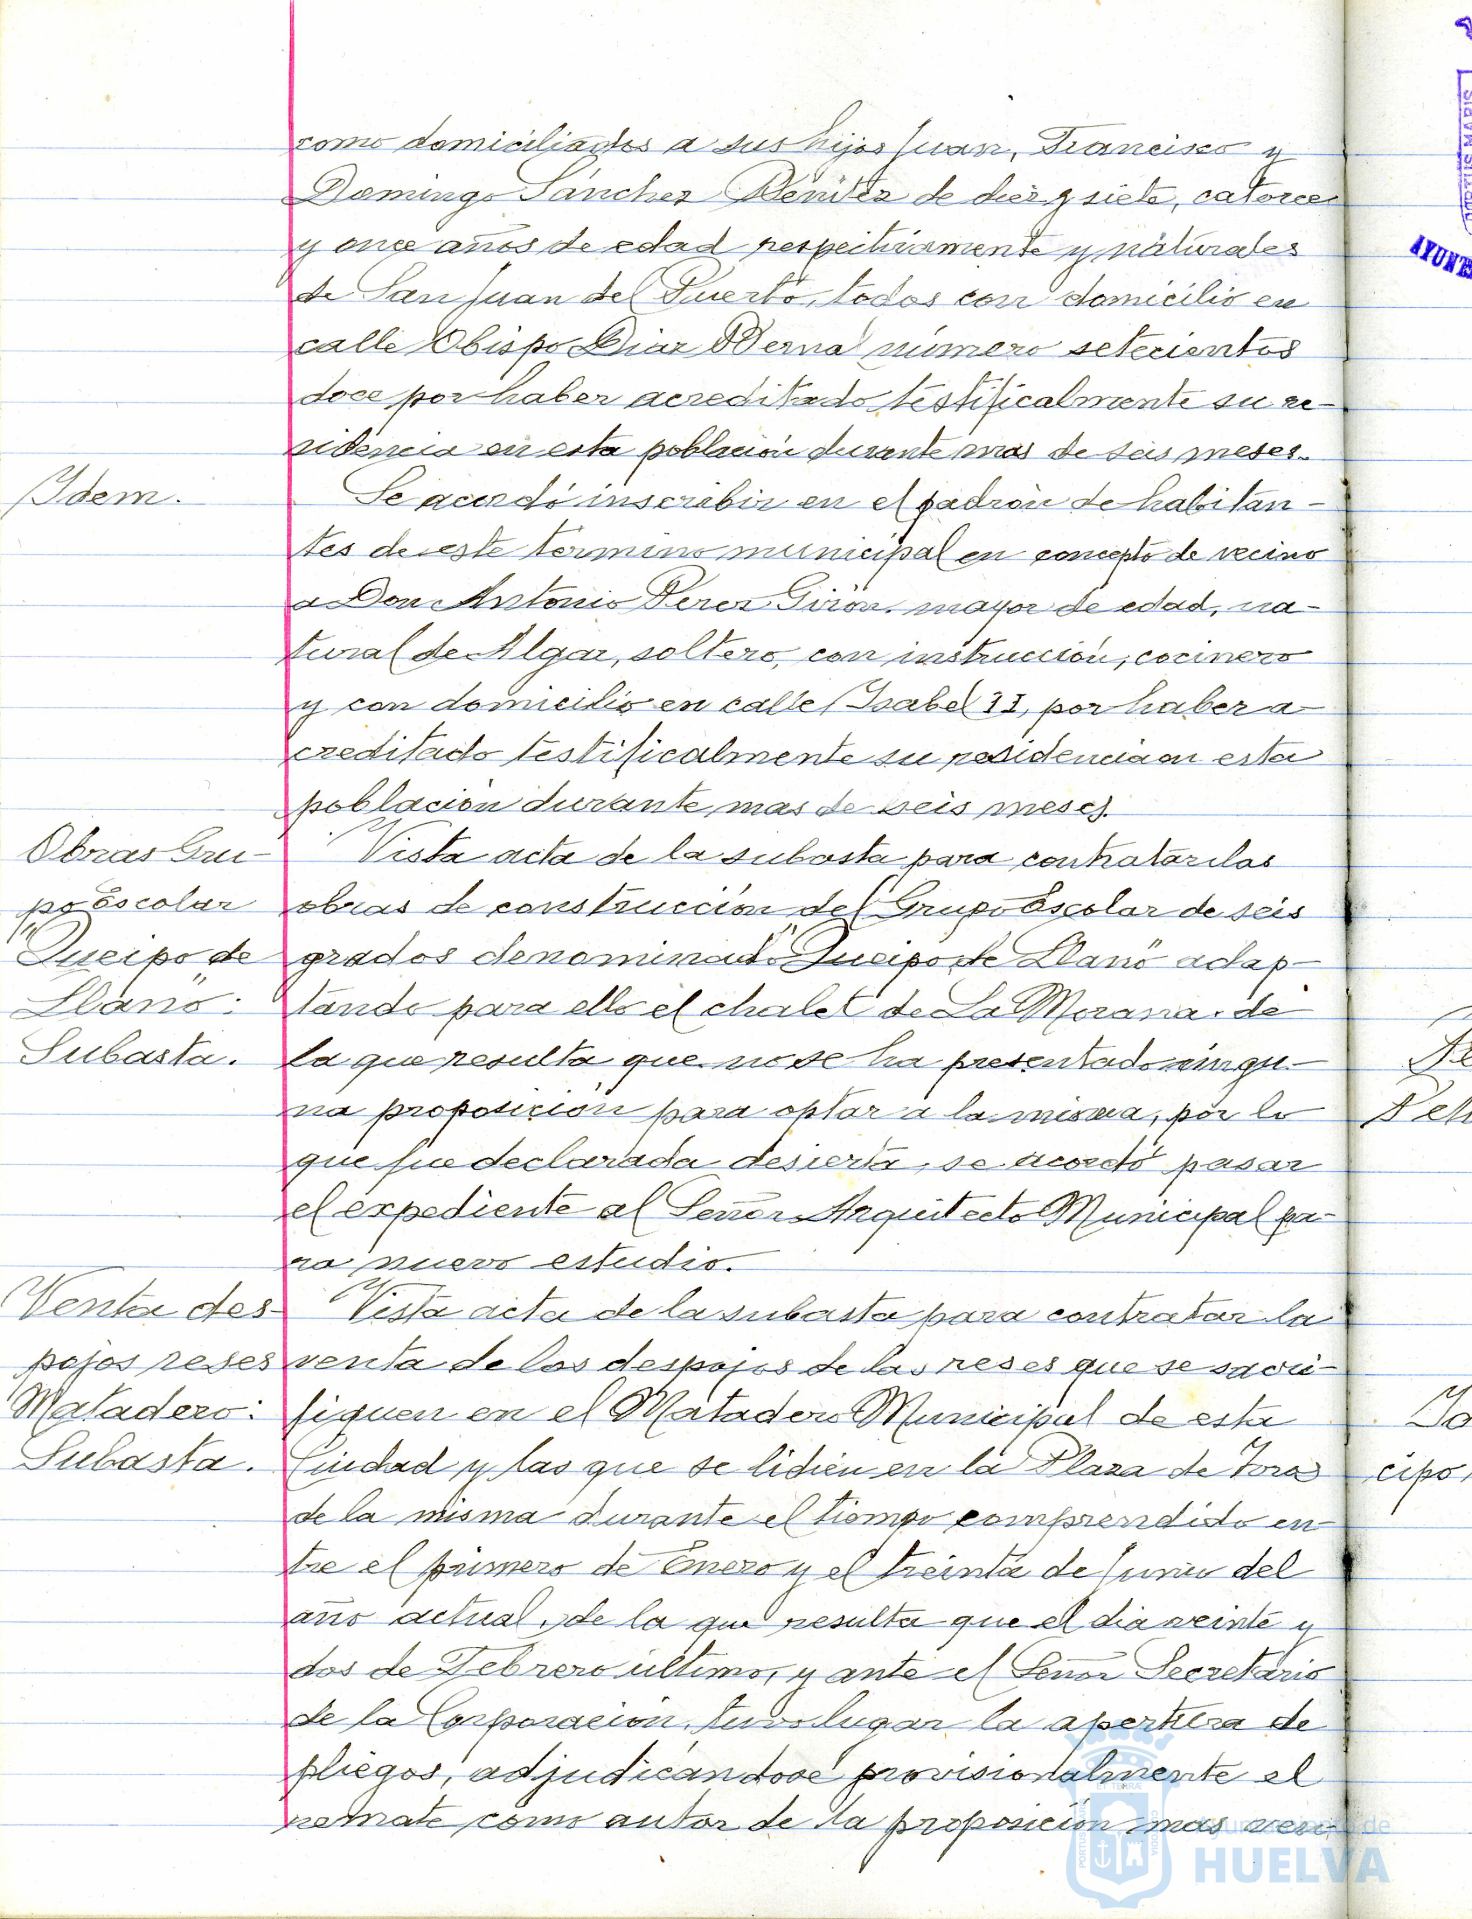 como domiciliados a sus hijos Juan, Francisco y
Domingo Sánchez Benítez de diez y siete, catorce
y once años de edad respectivamente y naturales
de San Juan del Puerto, todos con domicilio en
calle Obispo Diaz Berna número setecientos
doce por haber acreditado testificalmente su re-
sidencia en esta población durante mas de seis meses.
Idem.
Se acordó inscribir en el padrón de habitan-
tes de este término municipal en concepto de vecino
a Don Antonio Perez Girón, mayor de edad, na-
tural de Algar, soltero, con instrucción, cocinero
y con domicilio en calle Isabel II, por haber a-
creditado testificalmente su residencia en esta
población durante mas de seis meses.
Obras Gru-
po Escolar
"Queipo de
Llano":
Subasta.
Vista acta de la subasta para contratar las
obras de construcción del Grupo Escolar de seis
grados denominado "Queipo de Llano" adap-
tando para ello el chalet de La Morana, de
la que resulta que no se ha presentado ningu-
na proposición para optar a la misma, por lo
que fue declarada desierta, se acordó pasar
el expediente al Señor Arquitecto Municipal pa-
ra nuevo estudio.
Venta des-
pojos reses
Matadero:
Subasta.
Vista acta de la subasta para contratar la
venta de los despojos de las reses que se sacri-
fiquen en el Matadero Municipal de esta
Ciudad y las que se lidien en la Plaza de Toros
de la misma durante el tiempo comprendido en-
tre el primero de Enero y el treinta de Junio del
año actual, de la que resulta que el dia veinte y
dos de Febrero último, y ante el Señor Secretario
de la Corporación, tuvo lugar la apertura de
pliegos, adjudicándose provisionalmente el
remate como autor de la proposición mas ven-
cipo,
Ayuntamiento de
HUELVA